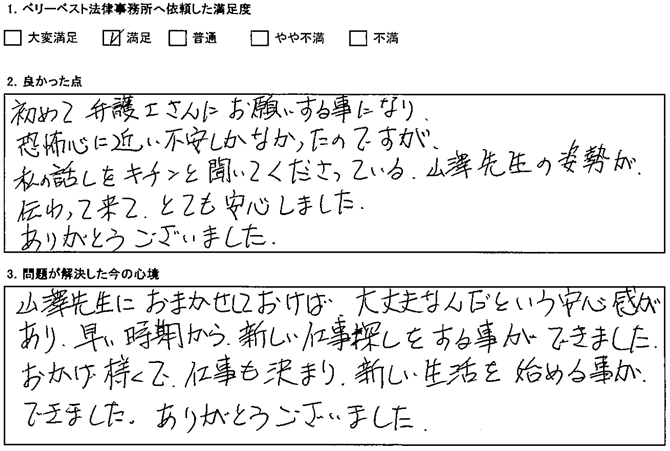 1. ベリーベスト法律事務所へ依頼した満足度
□ 大変満足 ☑ 満足 □ 普通 □ やや不満 □ 不満
2. 良かった点
初めて弁護士さんにお願いする事になり、
恐怖心に近い不安しかなかったのですが、
私の話しをキチンと聞いてくださっている、山澤先生の姿勢が、
伝わって来て、とても安心しました。
ありがとうございました。
3. 問題が解決した今の心境
山澤先生におまかせしておけば、大丈夫なんだという安心感が
あり、早い時期から、新しい仕事探しをする事ができました。
おかげ様で、仕事も決まり、新しい生活を始める事が、
できました。ありがとうございました。